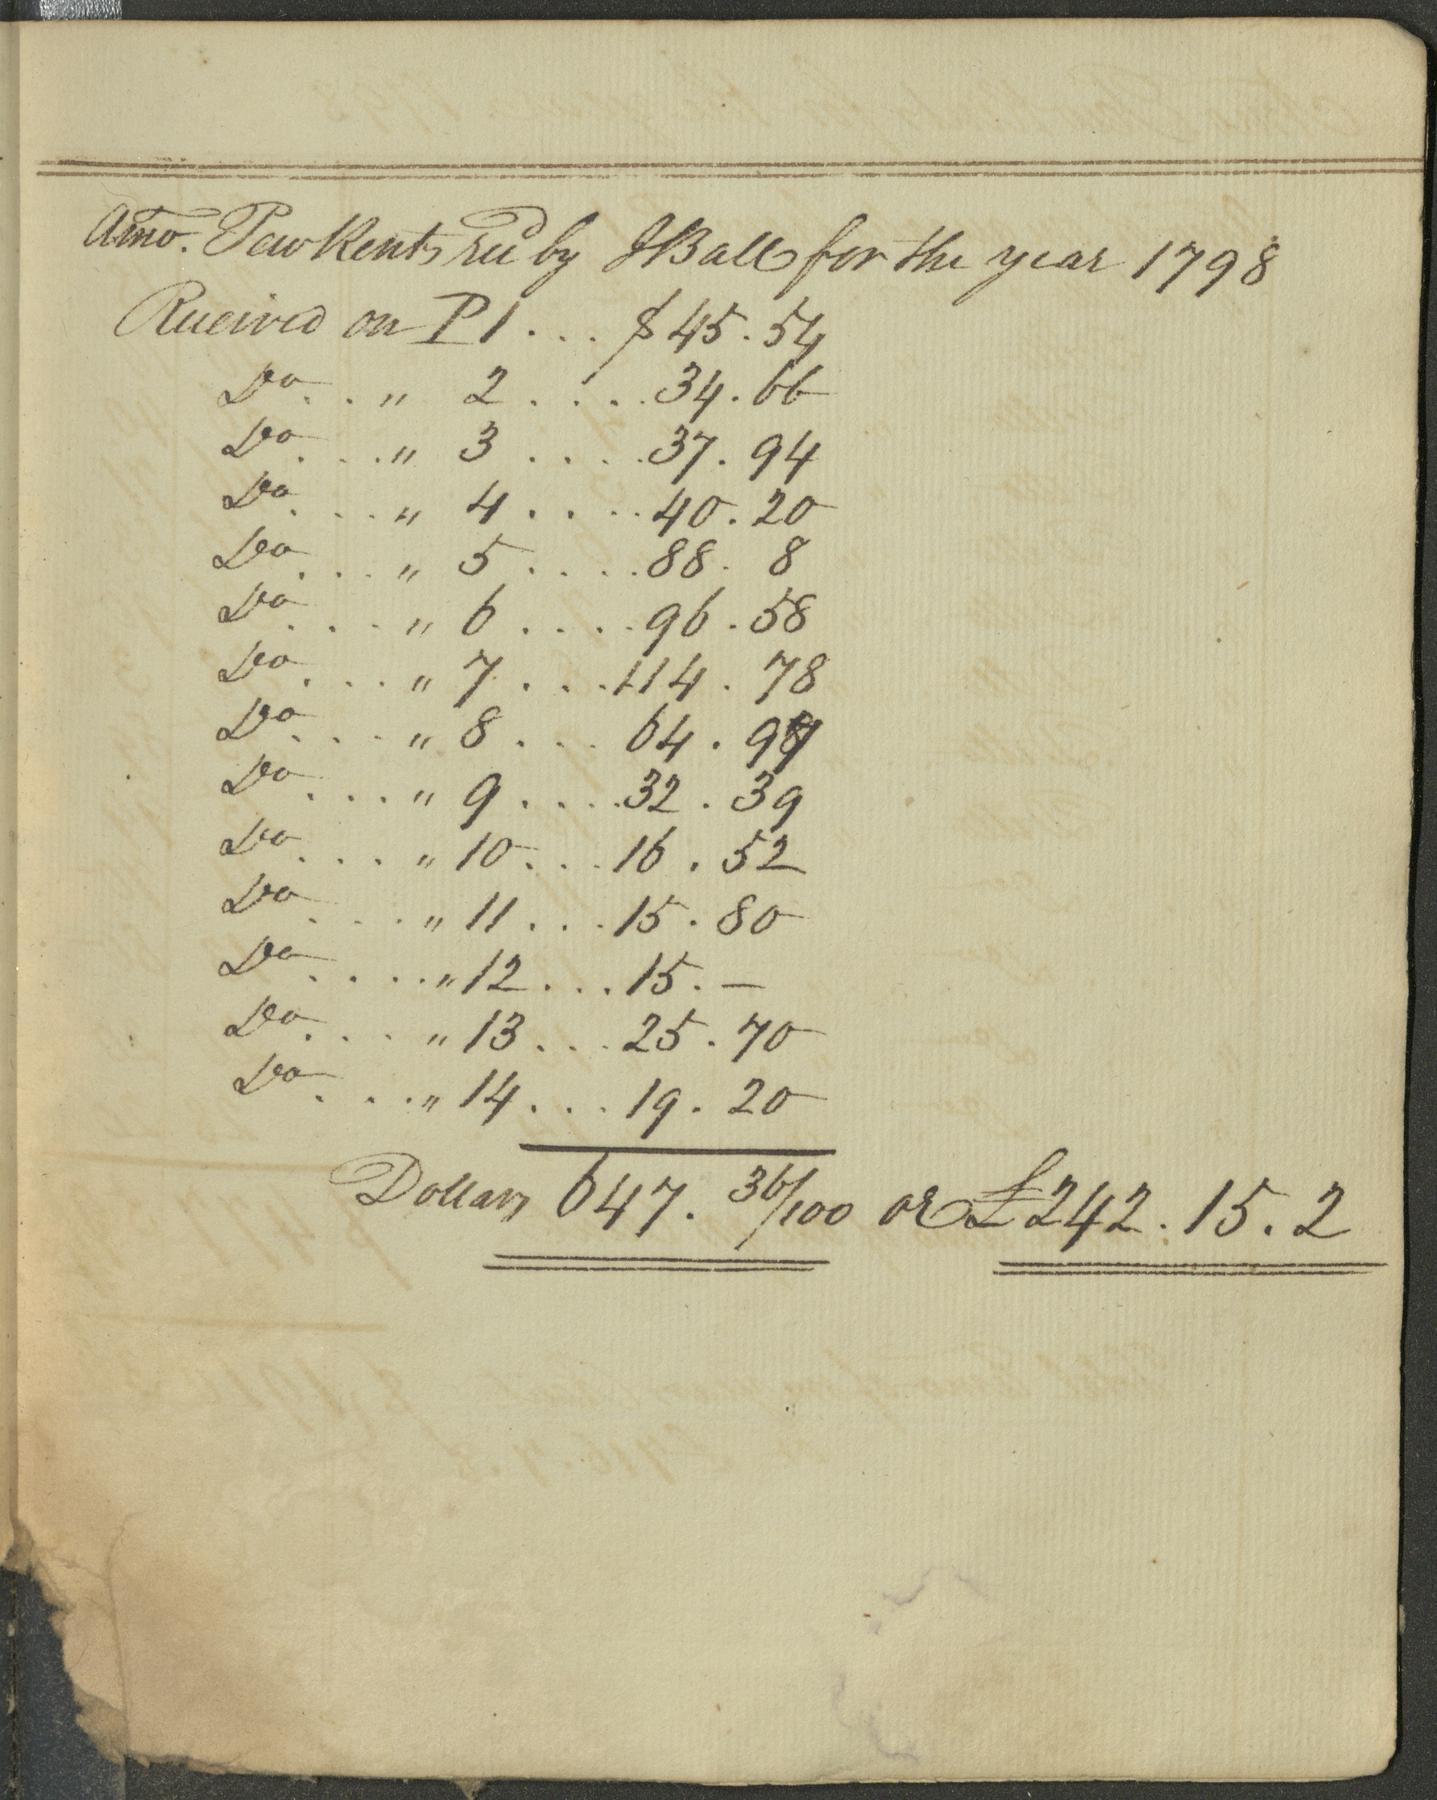 Amo. Pew Rents recd by J Ball for the year 1798
Received on P 1 . . . $ 45 . 54
Do . . " 2 . . . . 34 . 66
Do . . . " 3 . . . . 37 . 94
Do . . . " 4 . . . . 40 . 20
Do . . . " 5 . . . . 88 . 8
Do . . . " 6 . . . . 96 . 58
Do . . . " 7 . . . 114 . 78
Do . . . " 8 . . . 64 . 97
Do . . . " 9 . . . . 32 . 39
Do . . . " 10 . . . 16 . 52
Do . . . " 11 . . . 15 . 80
Do . . . . " 12 . . . 15 . —
Do . . . " 13 . . . 25 . 70
Do . . . " 14 . . . 19 . 20
Dollars 647 . 36/100 or £242 . 15 . 2